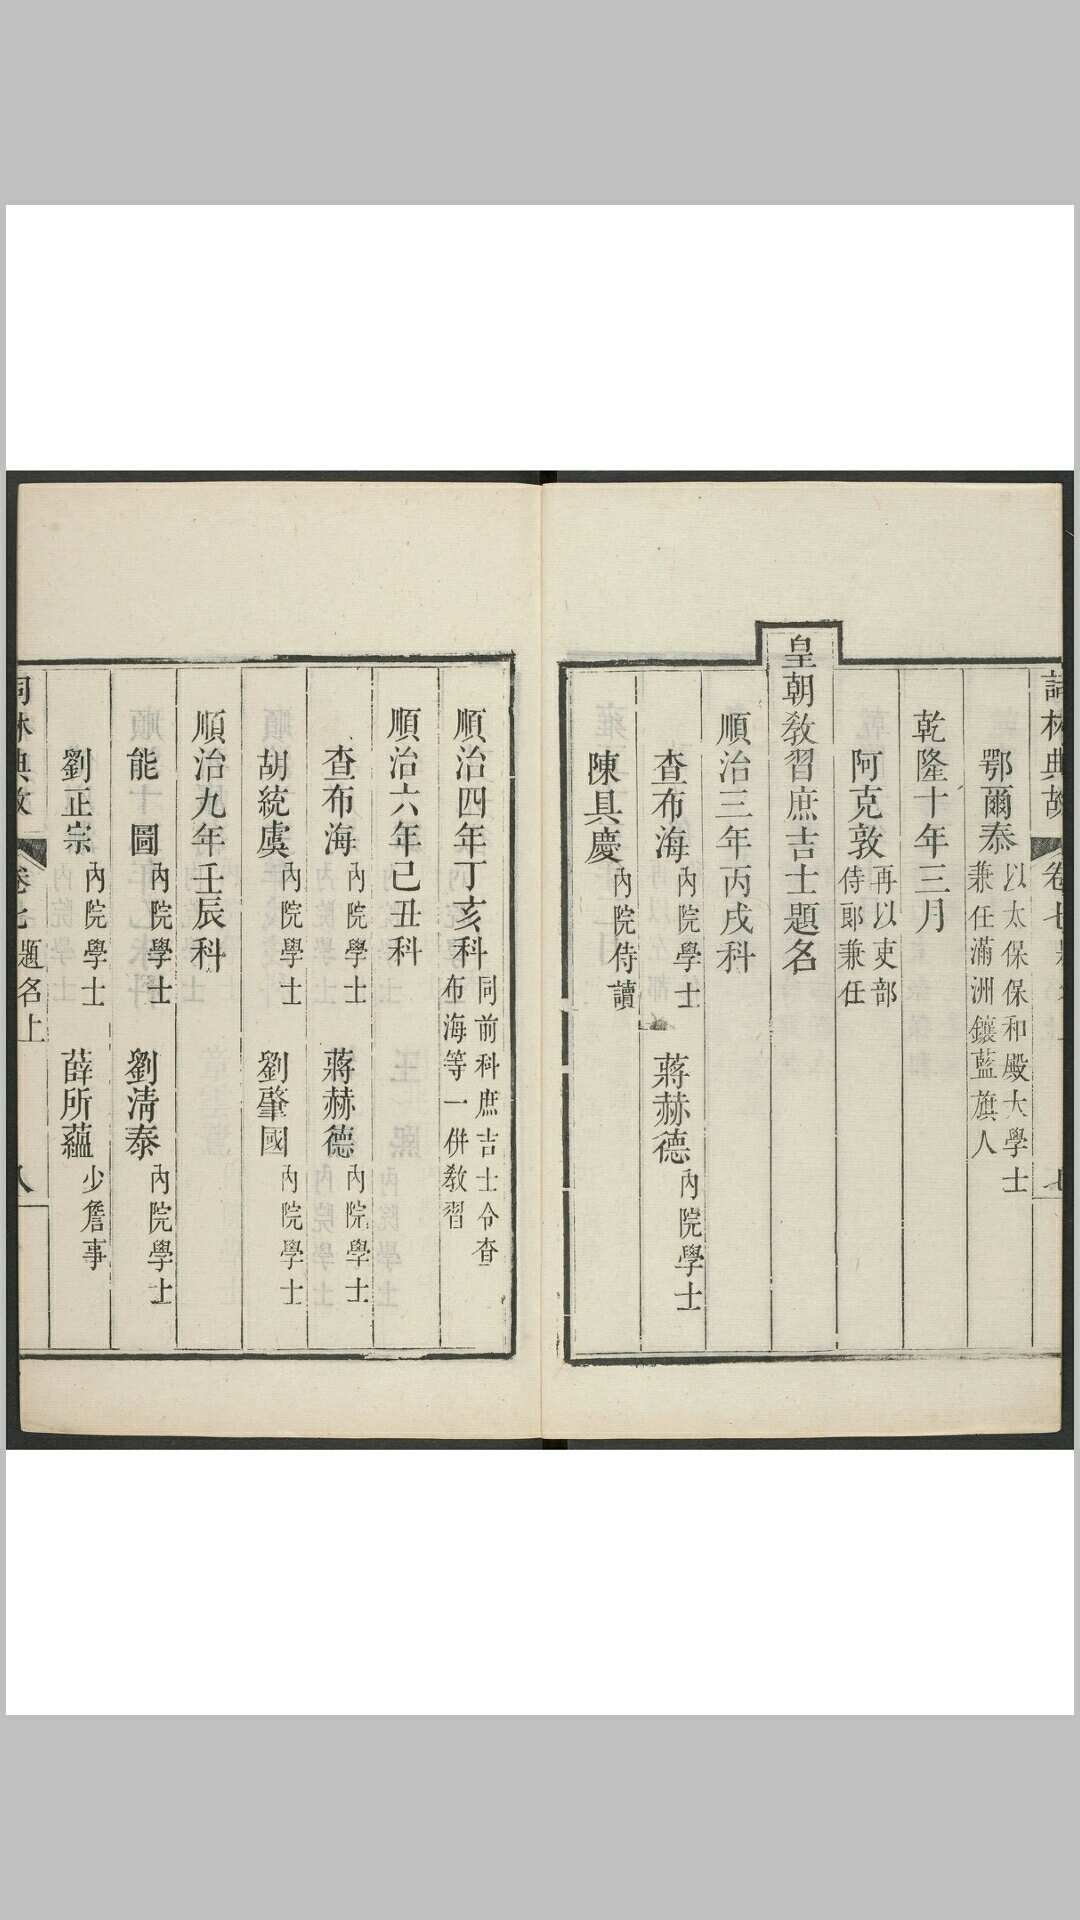 詞林典故 卷七
鄂爾泰 以太保保和殿大學士兼任滿洲鑲藍旗人
乾隆十年三月
阿克敦 再以吏部侍郎兼任
皇朝教習庶吉士題名
順治三年丙戌科
查布海 內院學士 蔣赫德 內院學士
陳具慶 內院侍讀
順治四年丁亥科 同前科庶吉士令查布海等一併教習
順治六年己丑科
查布海 內院學士 蔣赫德 內院學士
胡統虞 內院學士 劉肇國 內院學士
順治九年壬辰科
能圖 內院學士 劉清泰 內院學士
劉正宗 內院學士 薛所蘊 少詹事
詞林典故 卷七 題名上 八